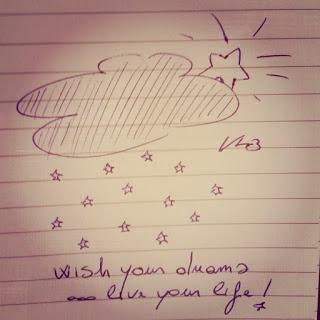 wish your dreams
... live your life!